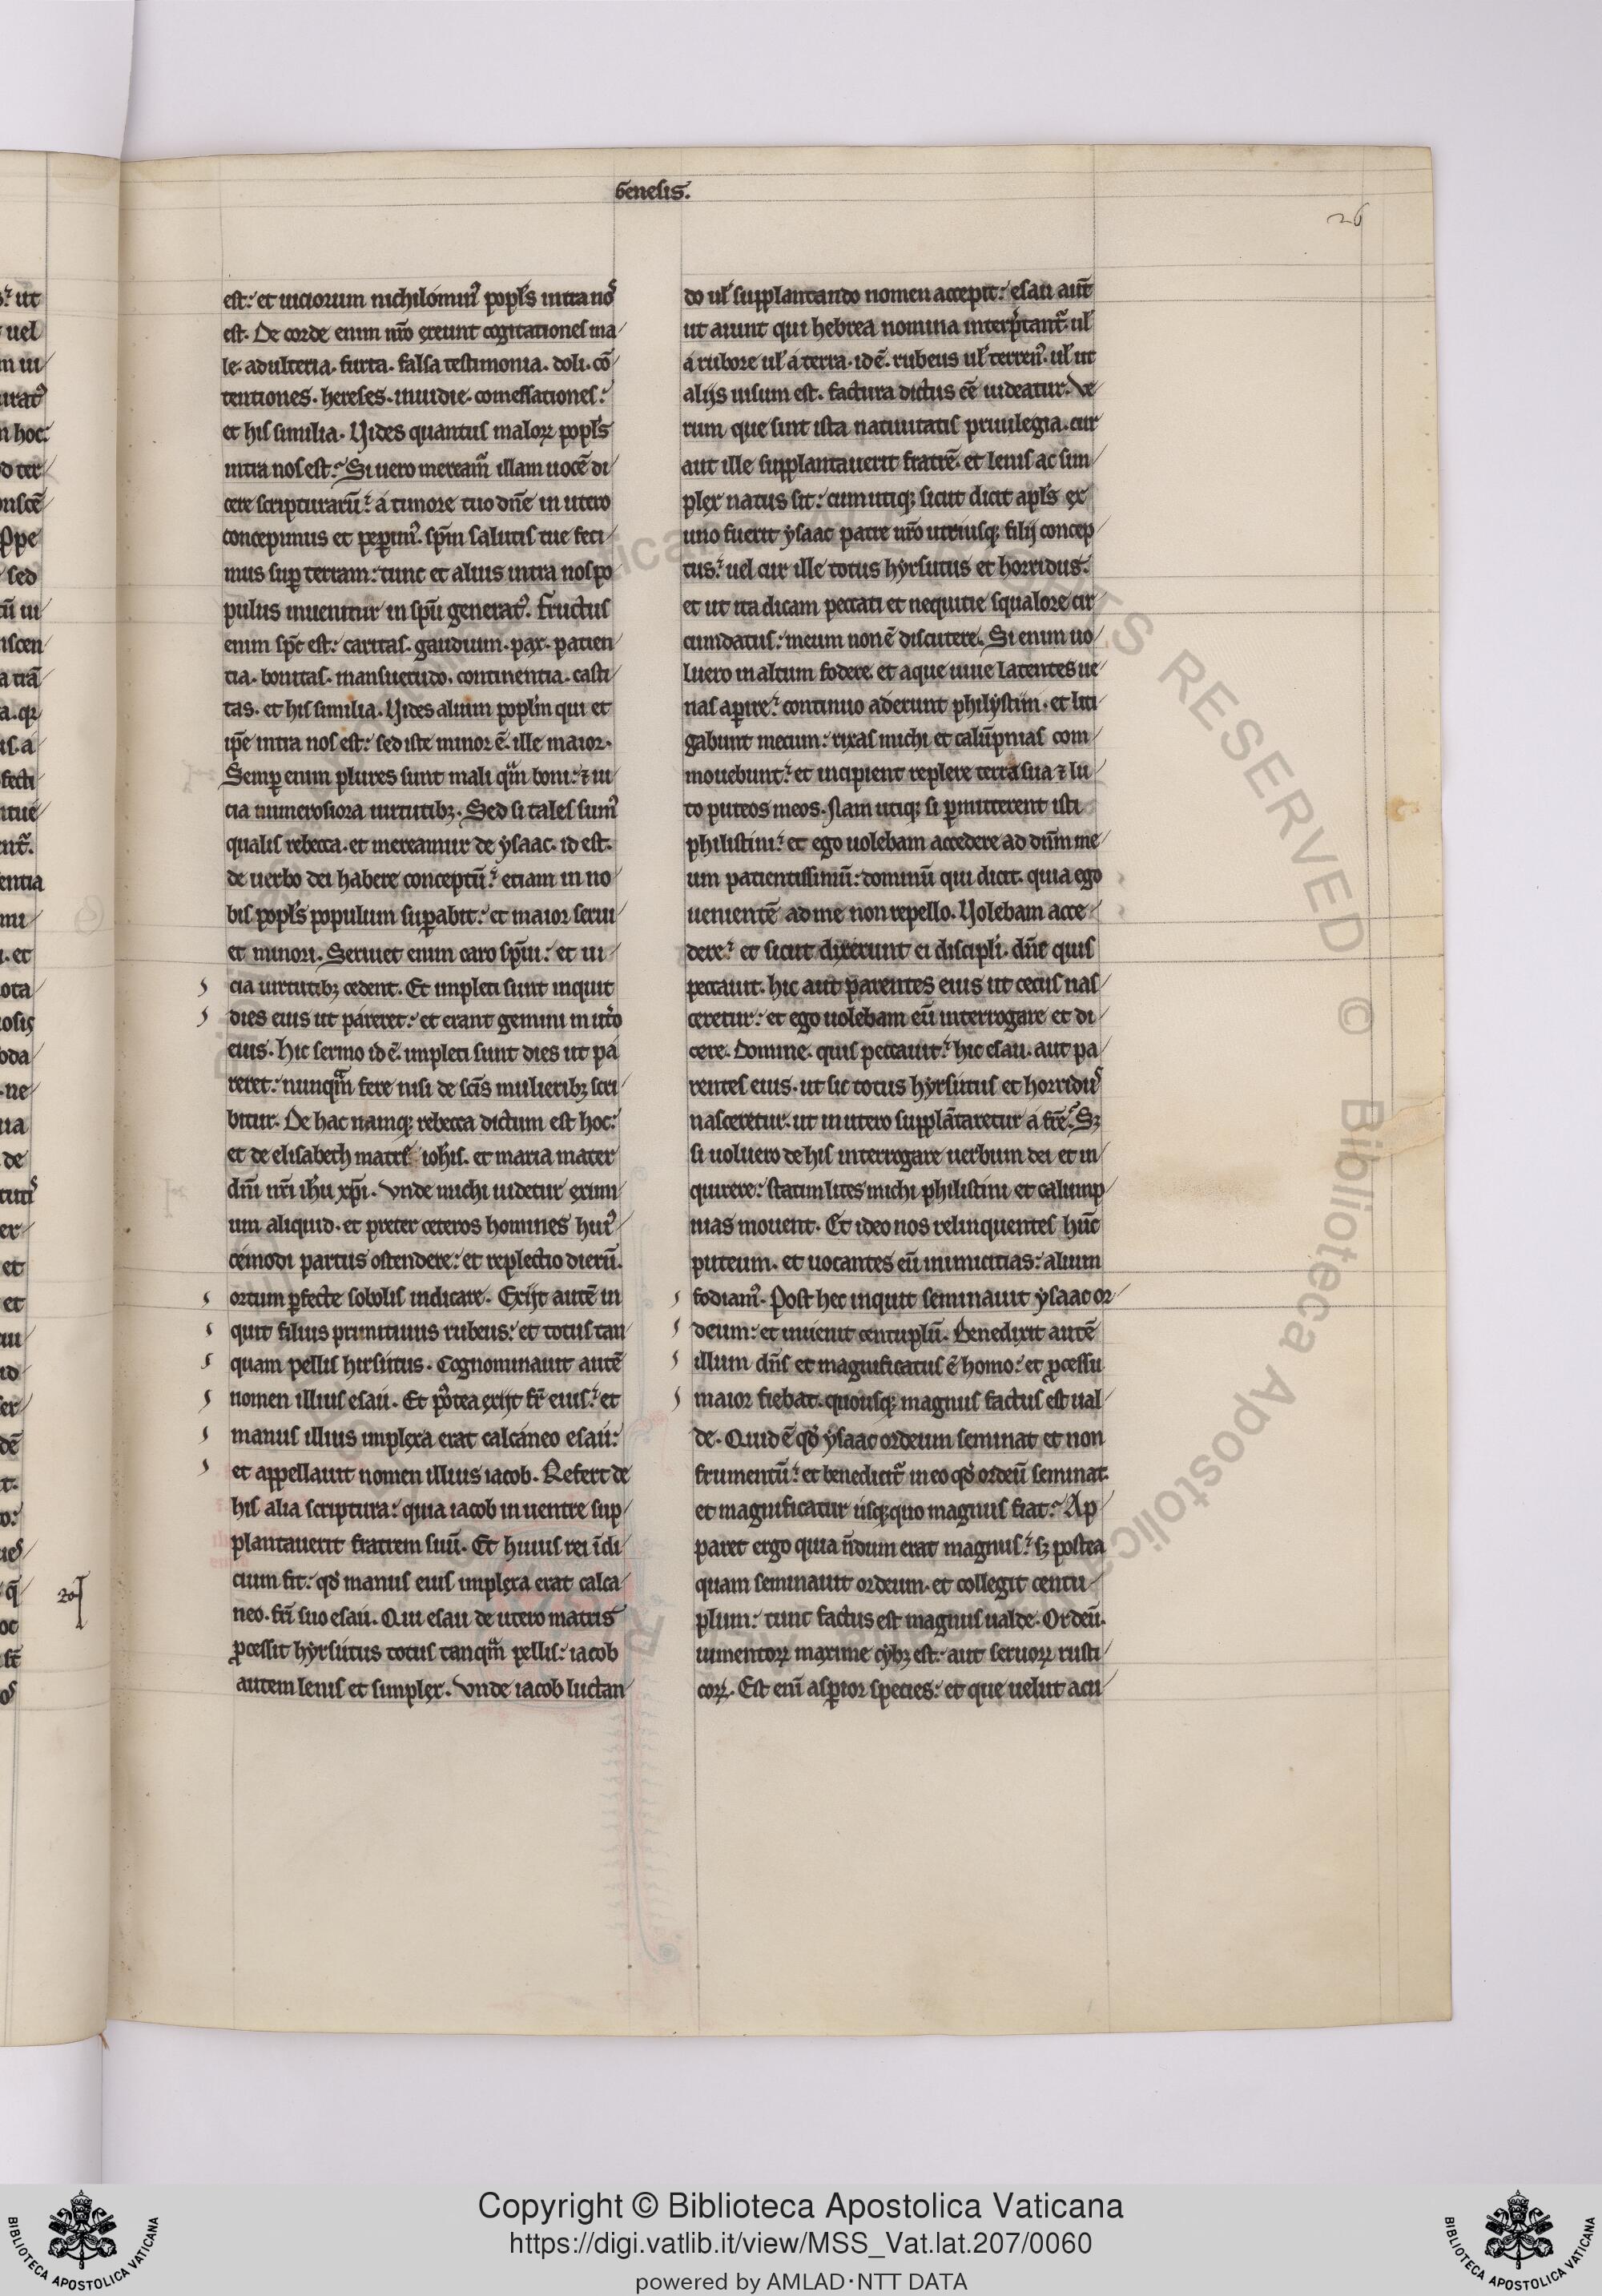 Genesis.
26
est: et uiciorum nichilomin⁹ popl's intra nos
est. De corde enim nr̄o exeunt cogitationes ma
le. adulteria. furta. falsa testimonia. doli. cō
tentiones. hereses. inuidie. comessationes:
et his similia. Vides quantus maloꝝ popl's
intra nos est: Si uero meream̄ illam uocē di
cere scripturarū: a timore tuo dn̄e in utero
concepimus et peꝑim⁹. sp̄m salutis tue feci
mus suꝑ terram: tunc et alius intra nos po
pulus inuenitur in sp̄u generat⁹. fructus
enim sp̄c est: caritas. gaudium. pax. patien
tia. bonitas. mansuetudo. continentia. casti
tas. et his similia. Vides alium popl'm qui et
ip̄e intra nos est: sed iste minor ē. ille maior.
Semꝑ enim plures sunt mali qm̄ boni: ⁊ ui
cia numerosiora uirtutibꝫ. Sed si tales sum⁹
qualis rebecca. et mereamur de ysaac. id est.
de uerbo dei habere conceptū: etiam in no
bis popl's populum suꝑabit: et maior serui
et minori. Seruiet enim caro sp̄iu: et ui
cia uirtutibꝫ cedent. Et impleti sunt inquit
dies eius ut pareret: et erant gemini in ut'o
eius. Hic sermo id ē. impleti sunt dies ut pa
reret: nunqm̄ fere nisi de scīs mulieribꝫ scri
bitur. De hac namqꝫ rebecca dictum est hoc:
et de elisabeth matre ioh'is. et maria mater
dn̄i nr̄i ih'u xp̄i. Vnde michi uidetur exim
um aliquid. et preter ceteros homines hui⁹
cemodi partus ostendere: et repletio dierū.
ortum ꝑfecte sobolis indicare. Exijt autē in
quit filius primitiuus rubeus: et totus tan
quam pellis hirsutus. Cognominauit autē
nomen illius esau. Et p̄o̅tea exijt fr̄ eius: et
manus illius implexa erat calcaneo esau:
et appellauit nomen illius iacob. Refert de
his alia scriptura: quia iacob in uentre sup
plantauerit fratrem suū. Et huius rei īdi
cium fit: qd̄ manus eius implexa erat calca
neo. fr̄i suo esau. Qui esau de utero matris
ꝓcessit hyrsutus totus tanqm̄ pellis: iacob
autem lenis et simplex. Vnde iacob luctan
do ul' supplantando nomen accepit: esau aut̄
ut aiunt qui hebrea nomina interp̄tant̄. ul'
a rubore ul' a terra. id ē. rubeus ul' terren⁹. ul' ut
alijs uisum est. factura dictus eē uideatur. Ve
rum que sint ista natiuitatis priuilegia. cur
aut ille supplantauerit fratrē. et lenis ac sim
plex natus sit: cum utiqꝫ sicut dicit apl's ex
uno fuerit ysaac patre nr̄o utriusqꝫ filij concep
tus: uel cur ille totus hyrsutus et horridus:
et ut ita dicam peccati et nequitie squalore cir
cumdatus: meum non ē discutere. Si enim uo
luero in altum fodere. et aque uiue latentes ue
nas aꝑire: continuo aderunt philystiim. et liti
gabunt mecum: rixas michi et calūpnias com
mouebunt: et incipient replere terra sua ⁊ lu
to puteos meos. Nam utiqꝫ si ꝑmitterent isti
philistini: et ego uolebam accedere ad dn̄m me
um patientissimū: dominū qui dicit. quia ego
uenientē ad me non repello. Volebam acce
dere: et sicut dixerunt ei discipl'i. dn̄e quis
peccauit. hic aut parentes eius ut cecus nas
ceretur: et ego uolebam eū interrogare et di
cere. Domine. quis peccauit: hic esau. aut pa
rentes eius. ut sic totus hyrsutus et horridus
nasceretur. ut in utero supplātaretur a fr̄e: Sꝫ
si uoluero de his interrogare uerbum dei et in
quirere: statim lites michi philistini et calump
nias mouent. Et ideo nos relinquentes hūc
puteum. et uocantes eū inimicitias: alium
fodiam⁹. Post hec inquit seminauit ysaac or
deum: et inuenit centuplū. Benedixit autē
illum dn̄s et magnificatus ē homo: et ꝓcessu
maior fiebat. quousqꝫ magnus factus est ual
de. Quid ē qd̄ ysaac ordeum seminat et non
frumentū: et benedicit̄ in eo qd̄ ordeū seminat.
et magnificatur usqꝫ quo magnus fiat: Ap
paret ergo quia n̄dum erat magnus: sꝫ postea
quam seminauit ordeum. et collegit centu
plum: tunc factus est magnus ualde. Ordeū.
iumentoꝝ maxime cybꝫ est: aut seruoꝝ rusti
coꝝ. Est eni̅ asꝑior species: et que uelut acu
Copyright © Biblioteca Apostolica Vaticana
https://digi.vatlib.it/view/MSS_Vat.lat.207/0060
powered by AMLAD·NTT DATA